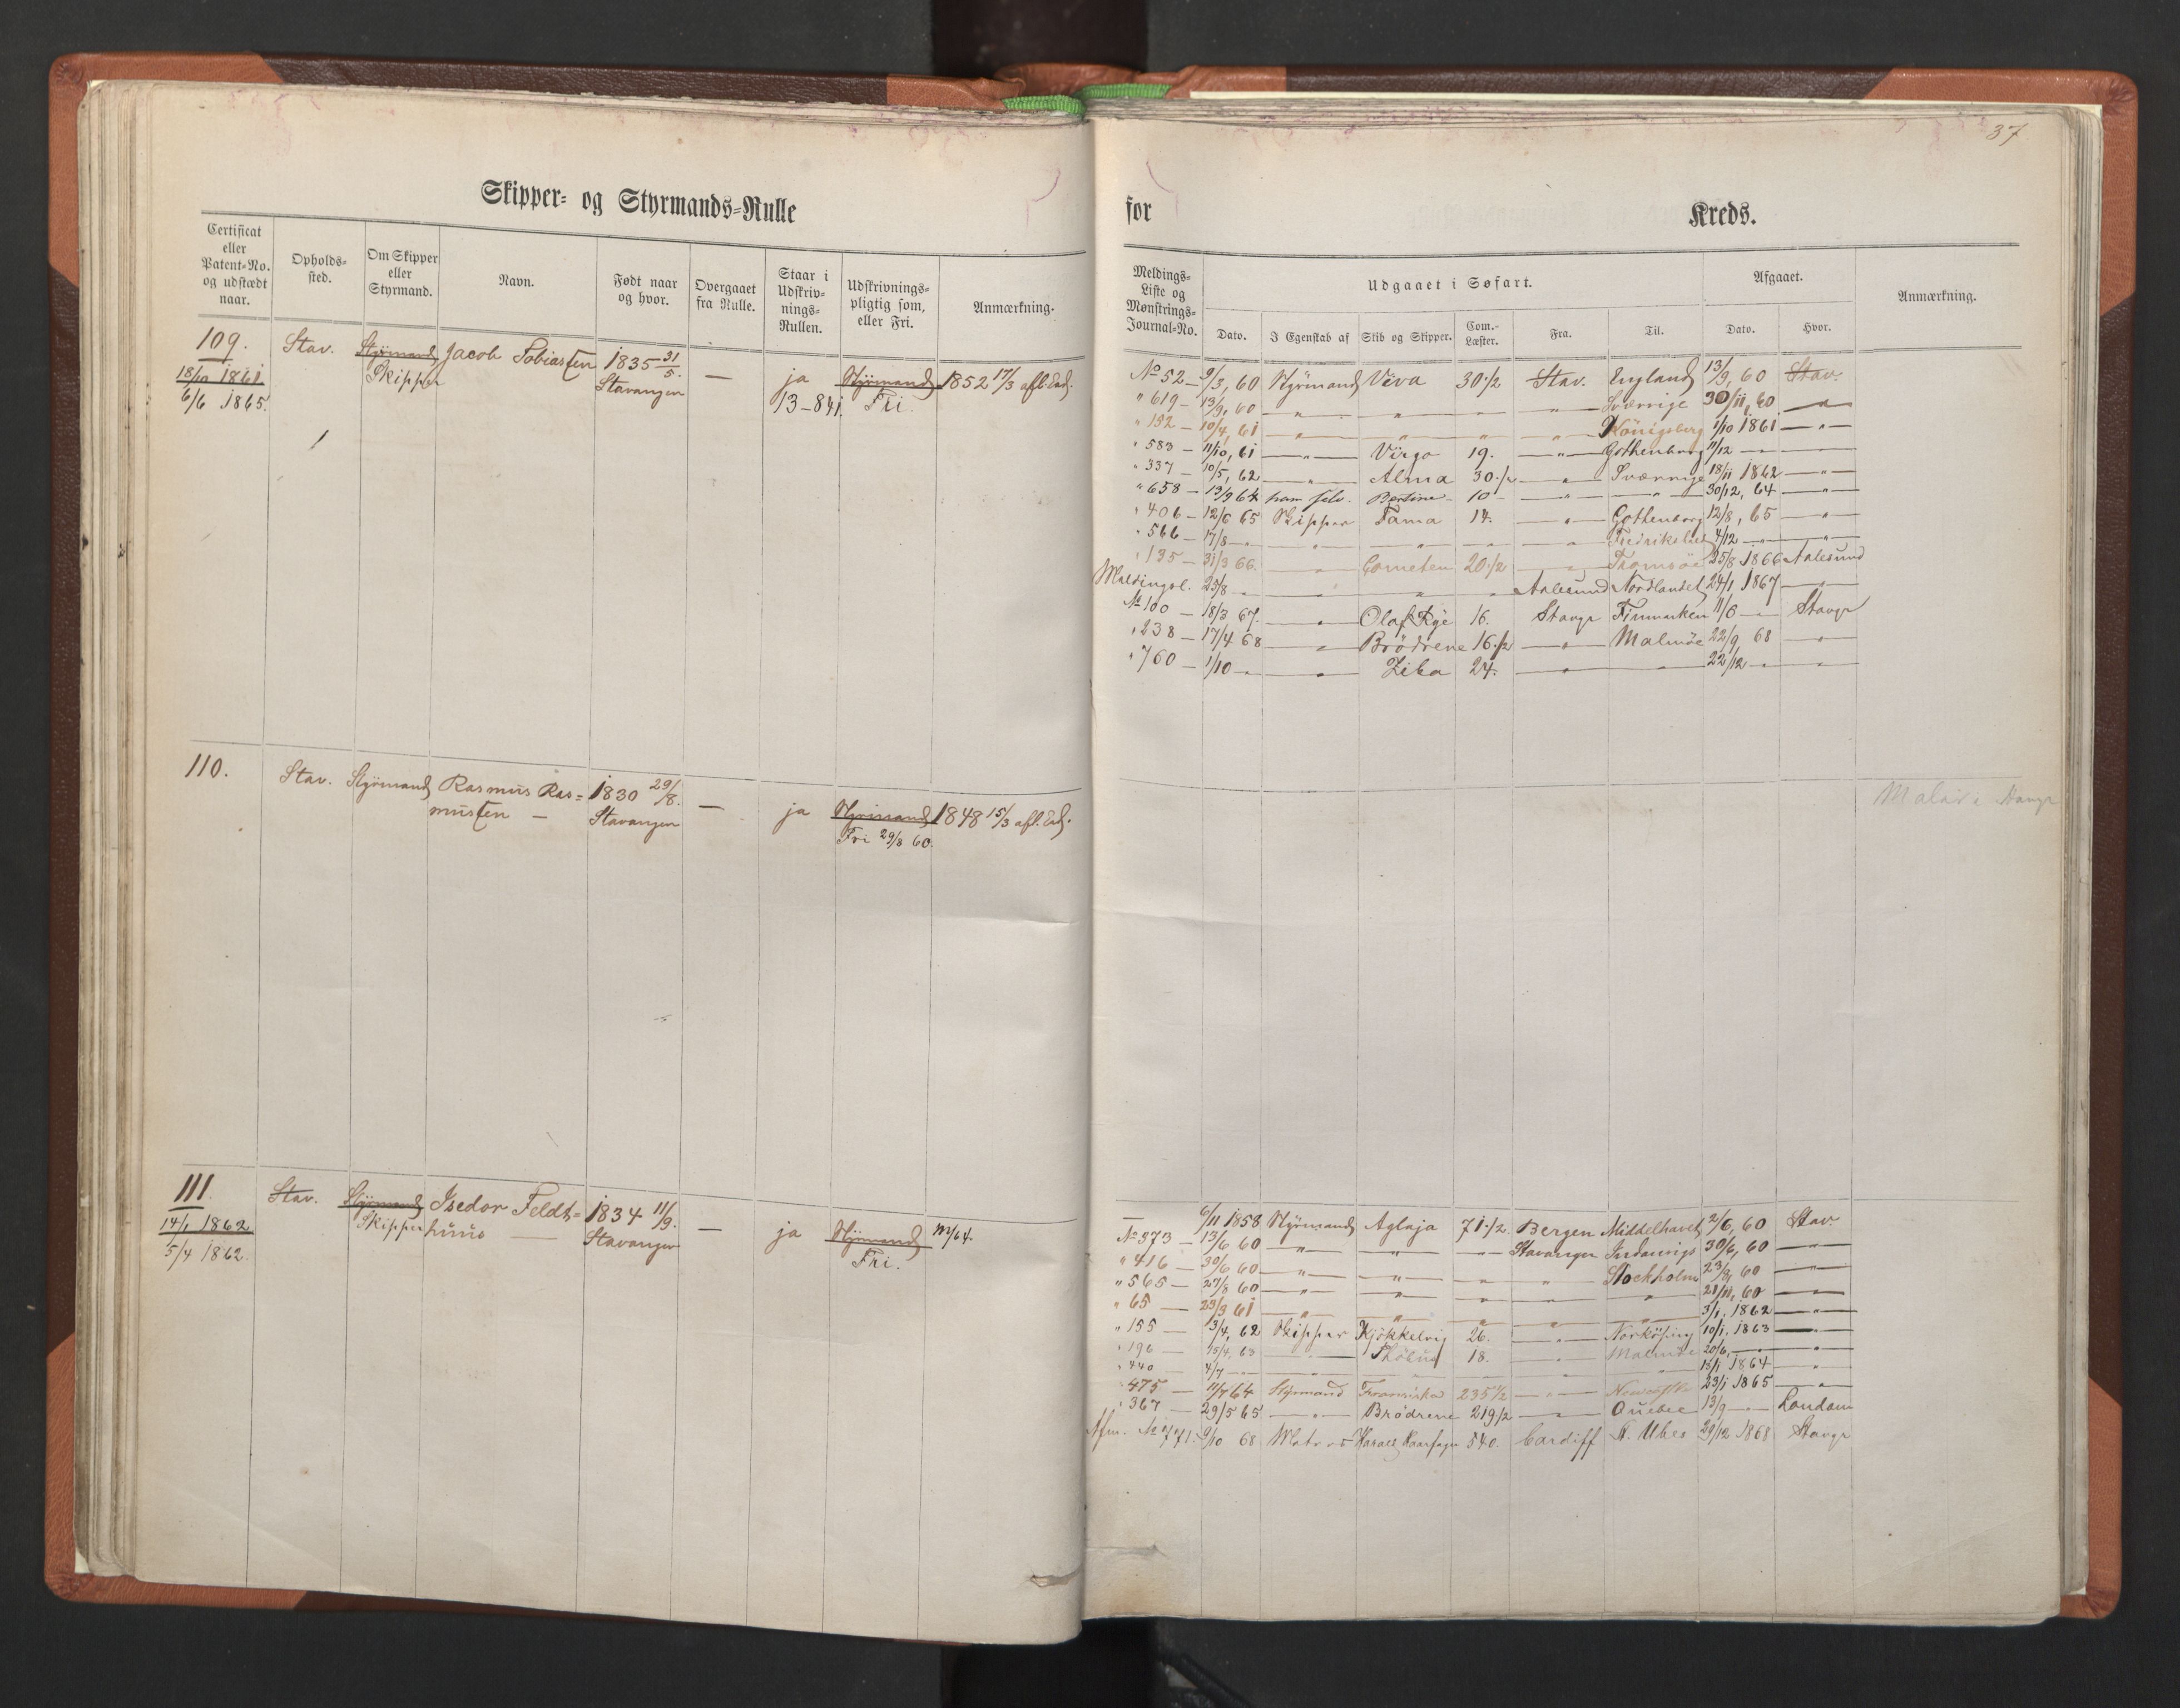 37
Skipper- og Styrmands-Rulle
for Kreds.
Certificat eller Patent-No. og udstædt naar.
Opholds-sted.
Om Skipper eller Styrmand.
Navn.
Født naar og hvor.
Overgaaet fra Rulle.
Staar i Udskriv-nings-Rullen.
Udskrivnings-pligtig som, eller Fri.
Anmærkning.
Meldings-Liste og Mønstrings-Journal-No.
Udgaaet i Søfart.
Afgaaet.
Anmærkning.
Dato. I Egenskab af Skib og Skipper. Com.-Læster. Fra. Til. Dato. Hvor.
109. Stav. Styrmand Jacob Tobiassen 1835 31/5. — ja Styrmand 1852 17/3 afl. Ed.
18/10 1861 Skipper Stavanger 13-841. Fri.
6/6 1865.
No 52 — 9/3, 60 Styrmand Viva 30 1/2 Stav. England 13/9, 60 Stav.
" 619 — 13/9, 60 " " " Sverrige 30/11, 60 "
" 152 — 10/4, 61 " " " " Königsberg 1/10 1861 "
" 583 — 11/10, 61 " Virgo 19. " Gothenborg 11/12 — "
" 337 — 10/5, 62 " Alma 30 1/2 " Sverrige 18/11 1862 "
" 658 — 13/9 64 ham selv. Bertine 10 " " 30/12, 64 "
" 406 — 12/6 65 Skipper Fama 14. " Gothenborg 12/8, 65 "
" 566 — 17/8 " " " " " 4/12 " "
" 135 — 31/3 66. " Cometen 20 1/2 " Tromsøe 25/8 1866 Aalesund
Meldingsl. 25/8 " " " " Aalesund Nordlandet 24/1 1867 "
No 100 — 18/3 67. " Olaf Rye 16. Stavgr Finmarken 11/6 — Stavgr
" 238 — 17/4 68 " Brödrene 16 1/2 " Malmöe 22/9 68 "
" 760 — 1/10 " " Ziba 24. " " 22/12 " "
110. Stav. Styrmand Rasmus Ras= 1830 29/8. — ja Styrmand 1848 15/3 afl. Ed.
mussen — Stavanger Fri 29/8 60.
111. Stav. Styrmand Isedor Feldt= 1834 11/9. — ja Styrmand
14/1 1862 Skipper huus — Stavanger Fri.
5/4 1862.
— 6/11 1858 Styrmand Aglaja 71 1/2 Bergen Middelhavet 2/6, 60 Stav.
No 373 — 13/6 60 " " " Stavanger 30/6, 60 "
" 416 — 30/6 60 " " " " Stockholm 23/8, 60 "
" 565 — 27/8 60 " " " " " 21/11, 60 "
" 65 — 23/3 61 " " " " " 3/1, 1862 "
" 155 — 3/4, 62 Skipper Kjökkelvig 26. " Norköping 10/1, 1863 "
" 196 — 15/4, 63 " 18. " Malmöe 20/6, " "
" 440 — 4/7 " " " " " " 18/1 1864 "
" 475 — 11/7 64 Styrmand Franciska 235 1/2 " Newcastle 23/1 1865 "
" 367 — 29/5 65 " Brödrene 219 1/2 " Quebec 13/9 — London
Afm. No 771. 9/10 68 Matros Harald Haarfagr 540. Cardiff St. Ubes 29/12 1868 Stavgr